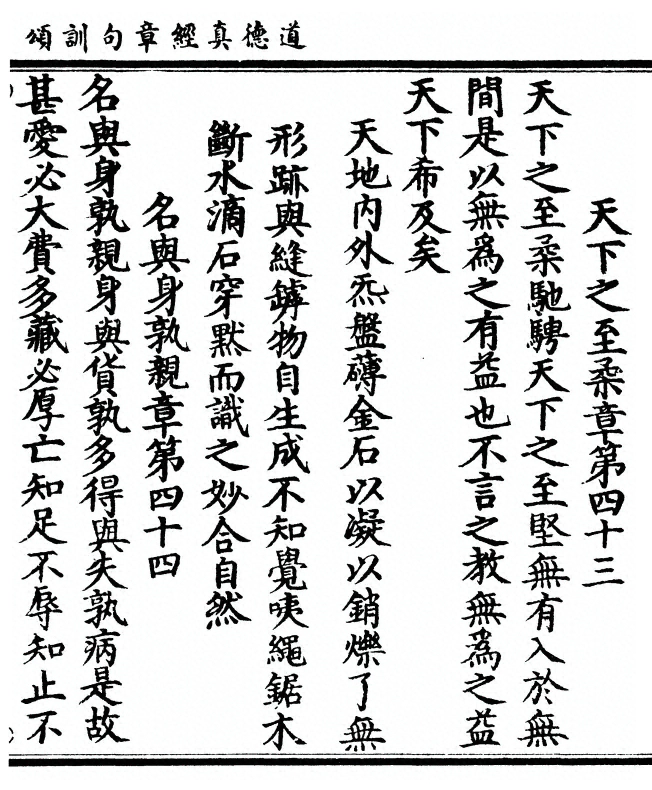 道德真經章句訓頌
天下之至柔章第四十三
天下之至柔馳騁天下之至堅無有入於無
間是以無為之有益也不言之教無為之益
天下希及矣
天地內外炁盤礡金石以凝以銷爍了無
形跡與縫罅物自生成不知覺咦繩鋸木
斷水滴石穿默而識之妙合自然
名與身孰親章第四十四
名與身孰親身與貨孰多得與失孰病是故
甚愛必大費多藏必厚亡知足不辱知止不